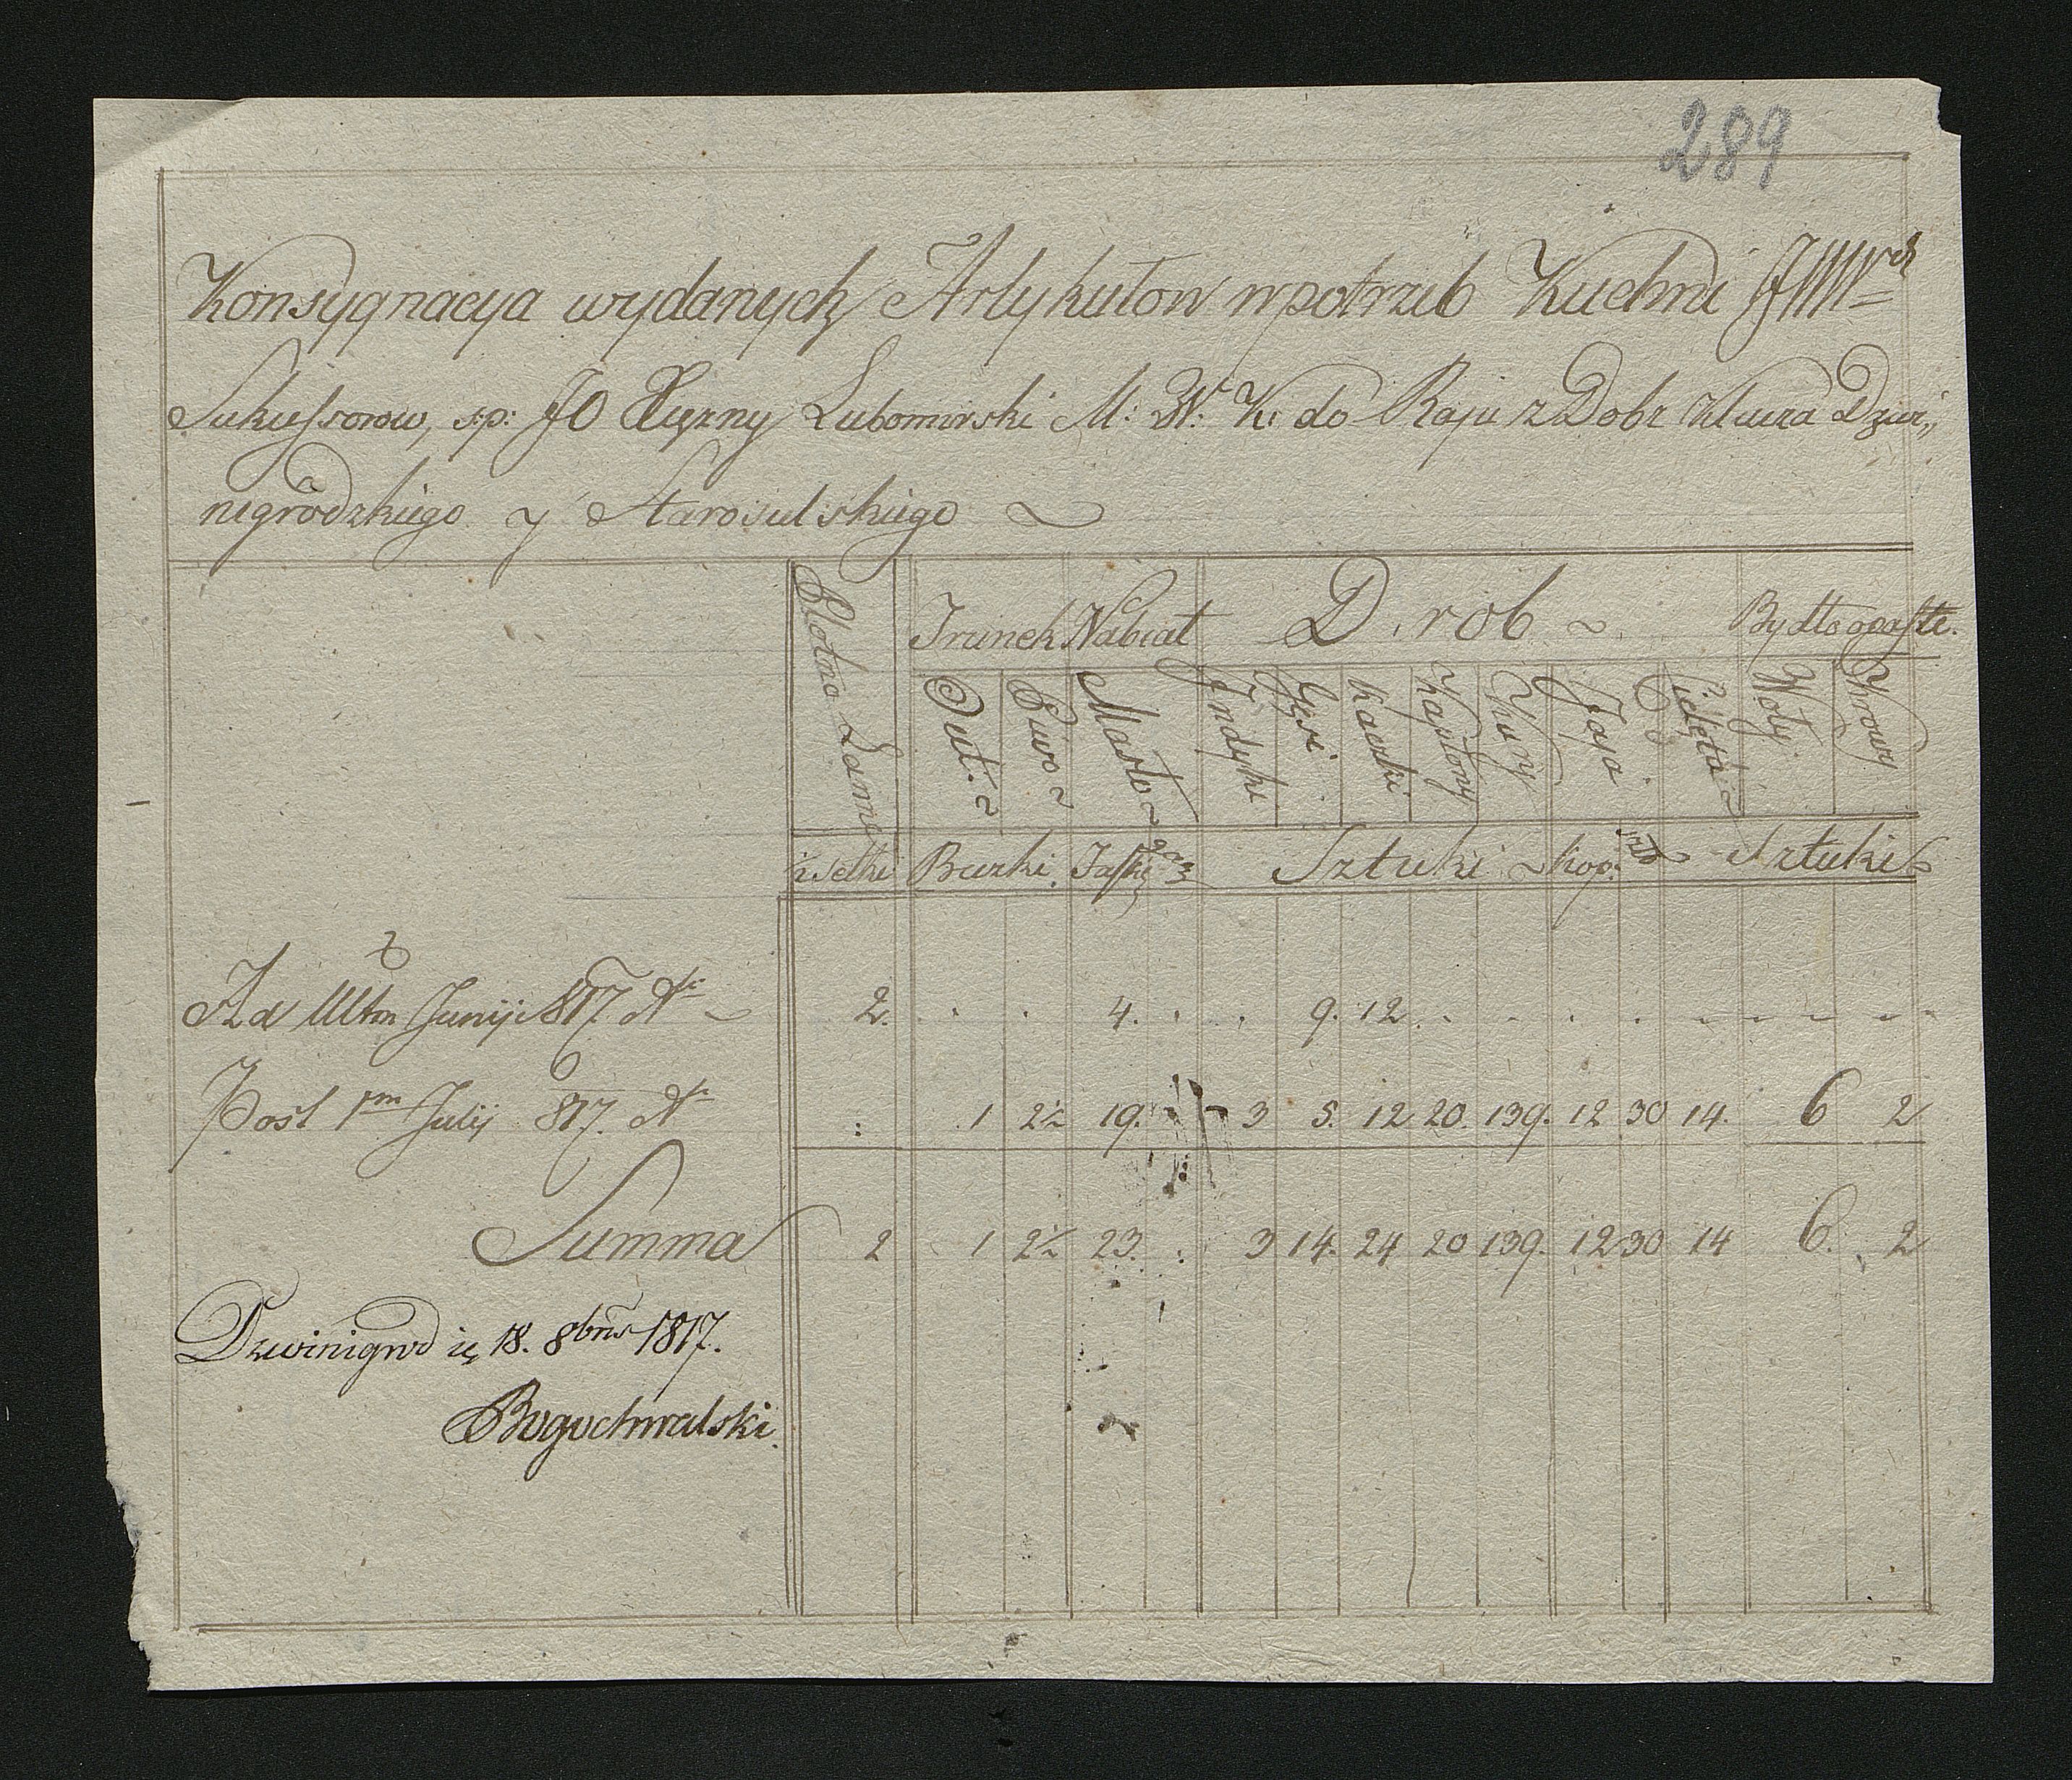 289
Konsygnacya wydanych Artykułow w potrzeb Kuchni JWWch
Sukcessorow, s:p: JO Xiężny Lubomirski M: W: K: do Raju z Dobr Klucza Dzwi„
nigrodzkiego y Starosielskiego
Płotna Lanne
Trunek Nabiał Drob Bydło opaste.
Out. Piwo Masło Indyki Gęsi Kaczki Kapłony Kury Jaja Cielęta Woły Krowy
½setki Beczki Faski garn Sztuki kop: sztu Sztuki
Ad Ultm Junij 817 Nr 2. . . 4. . . 9. 12 . - - . . - - - - -
Post 1m Julij 817. Nr : 1 2½ 19. - 3 5. 12 20. 139. 12 30 14. 6 2
Summa 2 1 2½ 23. : 3 14. 24 20 139. 12 30 14 6. 2
Dzwinigrod ię 18. 8bris 1817.
Bogochwalski.